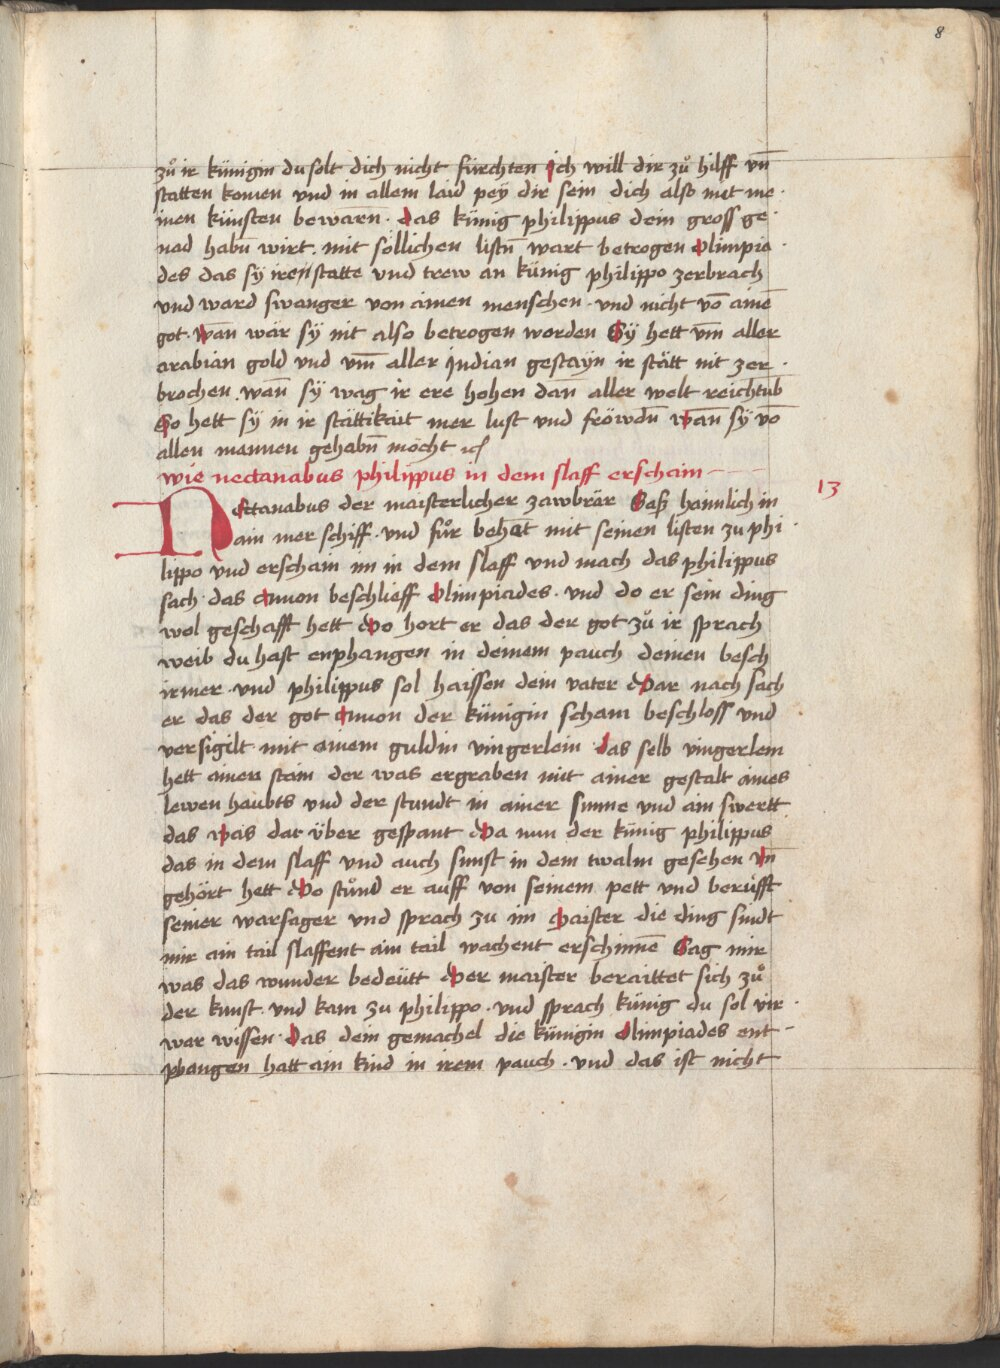 8
zuͦ ir künigin du solt dich nicht fürchten Ich will dir zuͦ hilff vn̄
statten komen vnd in allem laid peÿ dir sein dich also mit me⸗
inen künsten bewarn̄ · das künig philippus dein gross ge⸗
nad habn̄ wirt · mit söllichen listn̄ wart betrogen Olimpia⸗
des das sÿ iren statte vnd trew an künig philippo zerbrach
vnd ward swanger von ainen menschen · vnd nicht vō ainē
got · wan̄ wär sÿ nit also betrogen worden Sÿ hett vm̄ aller
arabian gold vnd vm̄ aller Indian gestayn ir stätt nit zer⸗
brochen · wan̄ sÿ wag ir ere hohen dan̄ aller welt reichtub̄
So hett sÿ in ir stättikait mer lust vnd fröwdn̄ wan̄ sÿ vō
allen mannen gehabn̄ möcht ⁊c̄
wie nectanabus philippus in dem slaff erschain
13
Nectanabus der maisterlicher zawbrär Saß haimlich in
ain mer schiff · vnd fuͦr behēt mit seinen listen zu phi⸗
lippo vnd erschain im in dem slaff vnd mach das philippus
sach · das Amon beschlieff Olimpiades · vnd do er sein ding
wol geschafft hett Do hort er das der got zuͦ ir sprach
weib du hast enphangen in deinem pauch deinen besch
irmer · vnd philippus sol haissen dein vater Dar nach sach
er das der got Amon der künigin scham beschloss vnd
versigilt mit ainem guldin vingerlein das selb vingerlein
hett ainen stain der was ergraben mit ainer gestalt aines
lewen haubts vnd der stundt in ainer sunne vnd ain swertt
das was dar über gespant Da nun der künig philippus
das in dem slaff vnd auch sunst in dem twalm gesehen vn̄
gehört hett Do stuͦnd er auff von seinem pett vnd beruͤfft
seiner warsager vnd sprach zu im Maister die ding sindt
mir ain tail slaffent ain tail wachent erschinnē Sag mir
was das wunder bedeütt Der maister beraittet sich zuͦ
der kunst · vnd kam zu philippo · vnd sprach künig du sol vir⸗
war wissen · Das dein gemachel die künigin Olimpiades ent⸗
phangen hatt ain kind in irem pauch · vnd das ist nicht